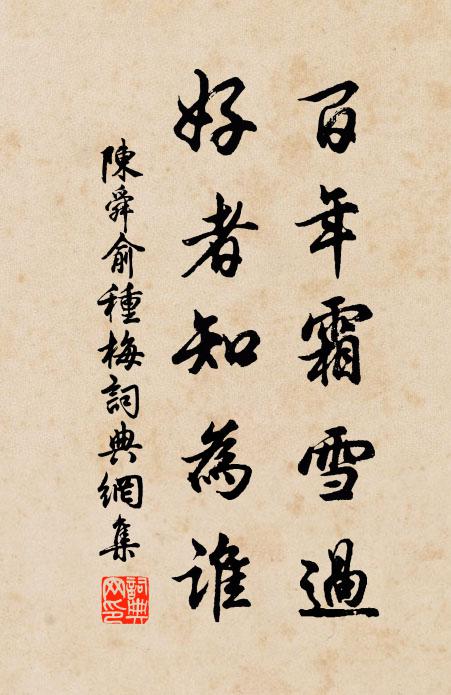 百年霜雪過
好者知為誰
陳舜俞種梅詞典網集
詞典網印